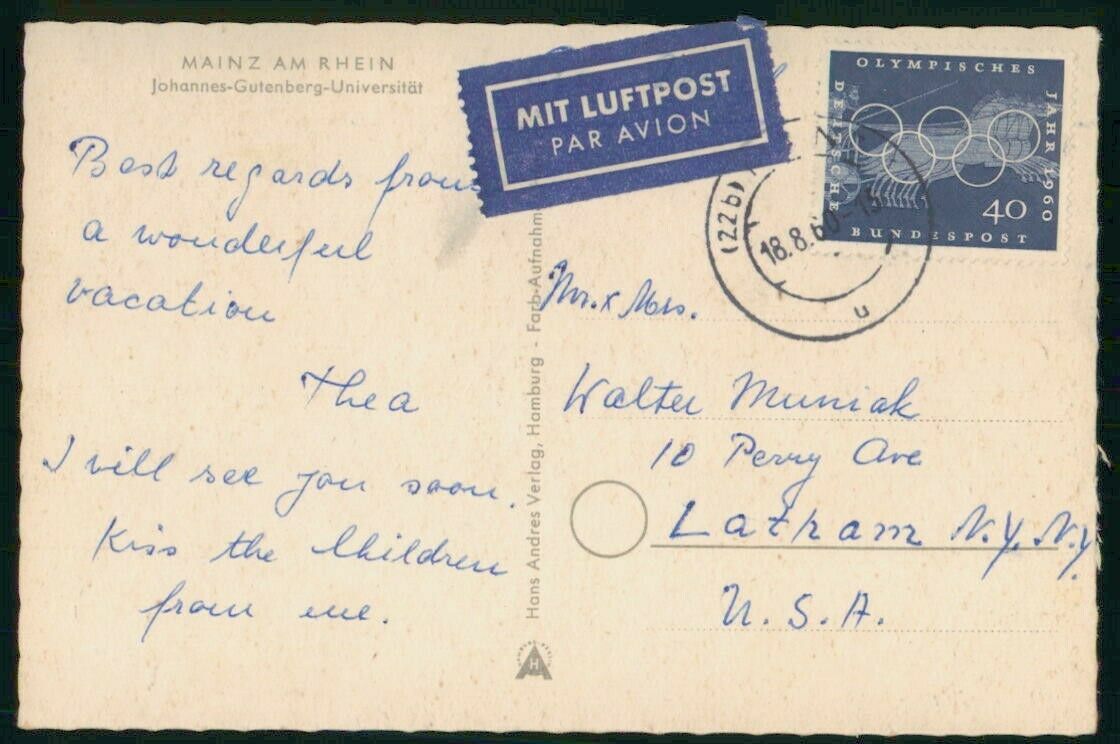 MAINZ AM RHEIN
Johannes-Gutenberg-Universität
MIT LUFTPOST
PAR AVION
OLYMPISCHES
JAHR 1960
DEUTSCHE
BUNDESPOST
40
(22b)
18.8.60-15
u
Best regards from
a wonderful
vacation
Thea
I will see you soon.
Kiss the Children
from me.
Hans Andres Verlag, Hamburg - Farb-Aufnahm
H
Mr. & Mrs.
Walter Muniak
10 Perry Ave
Latham N.Y. N.Y.
U.S.A.